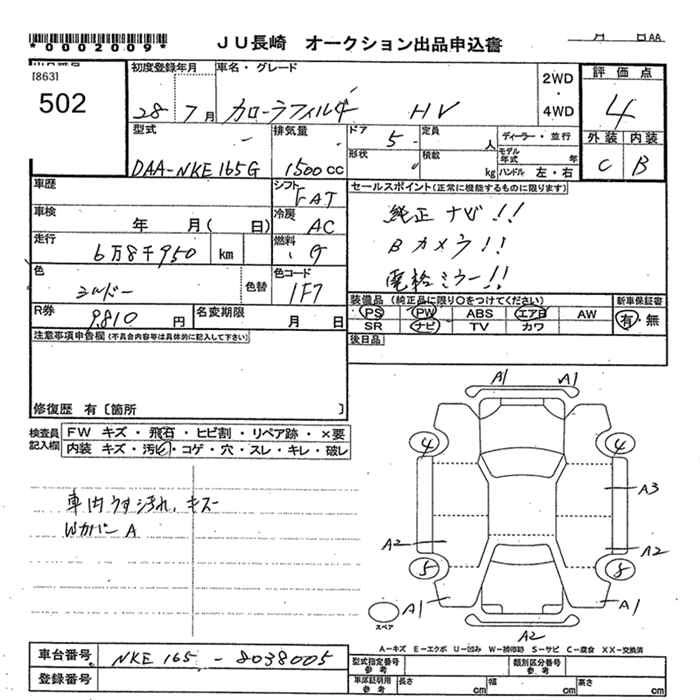 *0002009*
JU長崎 オークション出品申込書
月 日 AA
[863]
502
初度登録年月
28 年 7 月
車名・グレード
カローラフィルダ HV
2WD
・
4WD
評価点
4
外装 内装
C B
型式
DAA-NKE165G
排気量
1500 CC
ドア
5
形状
定員
人
積載
kg
ディーラー・並行
モデル年式 年
ハンドル 左・右
車歴
シフト
FAT
セールスポイント(正常に機能するものに限ります)
純正 ナビ!!
Bカメラ!!
電格ミラー!!
車検
年 月( 日)
冷房
AC
走行
6万8千950 km
燃料
G
色
シルバー
色替
色コード
1F7
R券
9810 円
名変期限
月 日
装備品(純正品に限り○をつけてください)
PS PW ABS エアB AW
SR ナビ TV カワ
新車保証書
有・無
後日品
注意事項申告欄(不具合内容等は具体的に記入して下さい)
修復歴 有〔箇所 〕
検査員記入欄
FW キズ・飛石・ヒビ割・リペア跡・×要
内装 キズ・汚ビ・コゲ・穴・スレ・キレ・破レ
車内うす汚れ、キズ
Wカバー A
A1 A1
4 4
A3
A2 A2
5 8
A1 A1
スペア
A2
A−キズ E−エクボ U−凹み W−補修跡 S−サビ C−腐食 XX−交換済
車台番号
NKE165 - 8038005
登録番号
型式指定番号
参考
類別区分番号
参考
車体証明用
参考
長さ cm 幅 cm 高さ cm